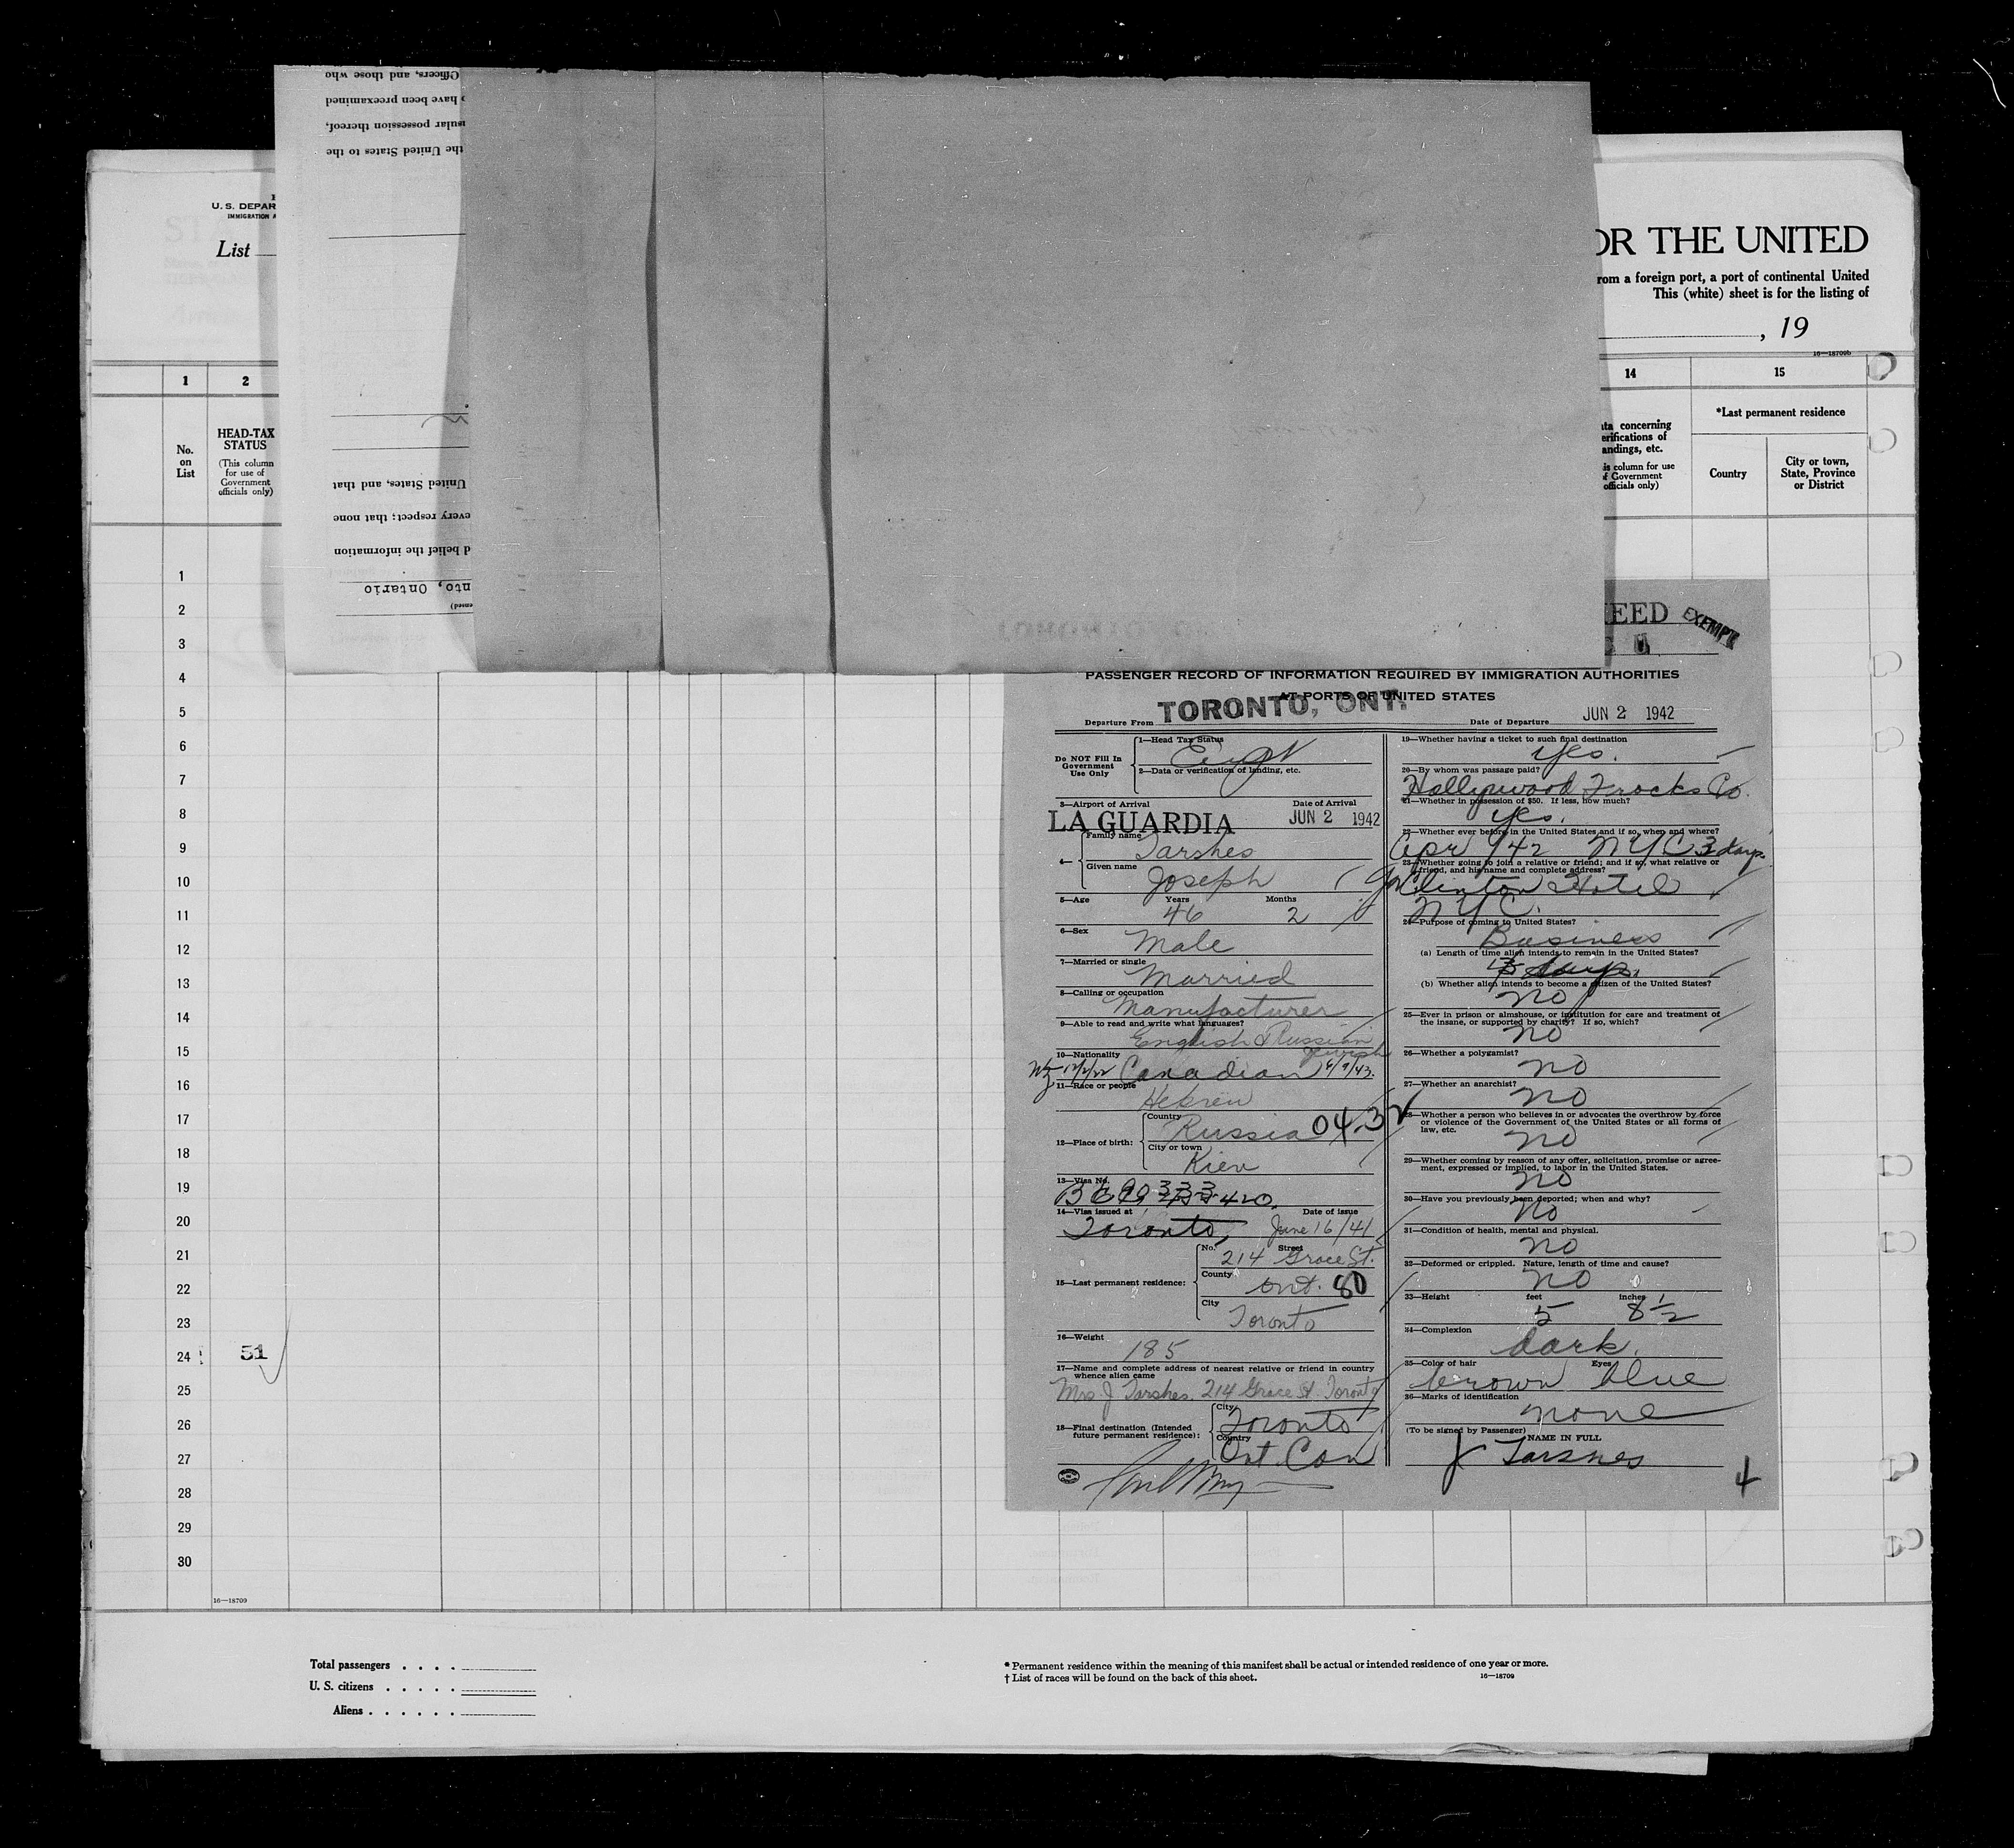 Officers, and those who
have been preexamined
possession thereof,
the United States to the
U. S. DEPAR
IMMIGRATION A
List
OR THE UNITED
rom a foreign port, a port of continental United
This (white) sheet is for the listing of
, 19
16—18709b
1
2
14
15
No.
on
List
HEAD-TAX
STATUS
(This column
for use of
Government
officials only)
ta concerning
erifications of
andings, etc.
is column for use
of Government
officials only)
*Last permanent residence
Country
City or town,
State, Province
or District
United States, and that
every respect; that none
d belief the information
nto, Ontario
1
2
3
4
5
6
7
8
9
10
11
12
13
14
15
16
17
18
19
20
21
22
23
24
51
25
26
27
28
29
30
16—18709
EED
EXEMPT
PASSENGER RECORD OF INFORMATION REQUIRED BY IMMIGRATION AUTHORITIES
AT PORTS OF UNITED STATES
Departure From TORONTO, ONT.
Date of Departure JUN 2 1942
Do NOT Fill In
Government
Use Only
1—Head Tax Status
2—Data or verification of landing, etc.
3—Airport of Arrival
Date of Arrival
LA GUARDIA
JUN 2 1942
4—
Family name
Tarshes
Given name
Joseph
5—Age Years Months
46 2
6—Sex
Male
7—Married or single
Married
8—Calling or occupation
Manufacturer
9—Able to read and write what languages?
English & Russian
Jewish
10—Nationality
Canadian 6/9/43.
11—Race or people
Hebrew
12—Place of birth:
Country
Russia 04-32
City or town
Kiev
13—Visa No.
14—Visa issued at Date of issue
Toronto, June 16/41
15—Last permanent residence:
No. Street
214 Grace St.
County
Ont. 80
City
Toronto
16—Weight
185
17—Name and complete address of nearest relative or friend in country
whence alien came
Mrs J Tarshes, 214 Grace St. Toronto
18—Final destination (Intended
future permanent residence):
City
Toronto
Country
Ont. Can
19—Whether having a ticket to such final destination
Yes.
20—By whom was passage paid?
Hollywood Frocks Co.
21—Whether in possession of $50. If less, how much?
Yes.
22—Whether ever before in the United States and if so, when and where?
Apr 9/42 NYC 3 days
23—Whether going to join a relative or friend; and if so, what relative or
friend, and his name and complete address?
Clinton Hotel
NYC.
24—Purpose of coming to United States?
Business
(a) Length of time alien intends to remain in the United States?
days.
(b) Whether alien intends to become a citizen of the United States?
no
25—Ever in prison or almshouse, or institution for care and treatment of
the insane, or supported by charity? If so, which?
no
26—Whether a polygamist?
no
27—Whether an anarchist?
no
28—Whether a person who believes in or advocates the overthrow by force
or violence of the Government of the United States or all forms of
law, etc.
no
29—Whether coming by reason of any offer, solicitation, promise or agree-
ment, expressed or implied, to labor in the United States.
no
30—Have you previously been deported; when and why?
no
31—Condition of health, mental and physical.
no
32—Deformed or crippled. Nature, length of time and cause?
no
33—Height feet inches
5 8½
34—Complexion
dark.
35—Color of hair Eyes
brown blue
36—Marks of identification
none
(To be signed by Passenger)
NAME IN FULL
J Tarshes
Total passengers . . . .
U. S. citizens . . . . .
Aliens . . . . . .
* Permanent residence within the meaning of this manifest shall be actual or intended residence of one year or more.
† List of races will be found on the back of this sheet.
16—18709